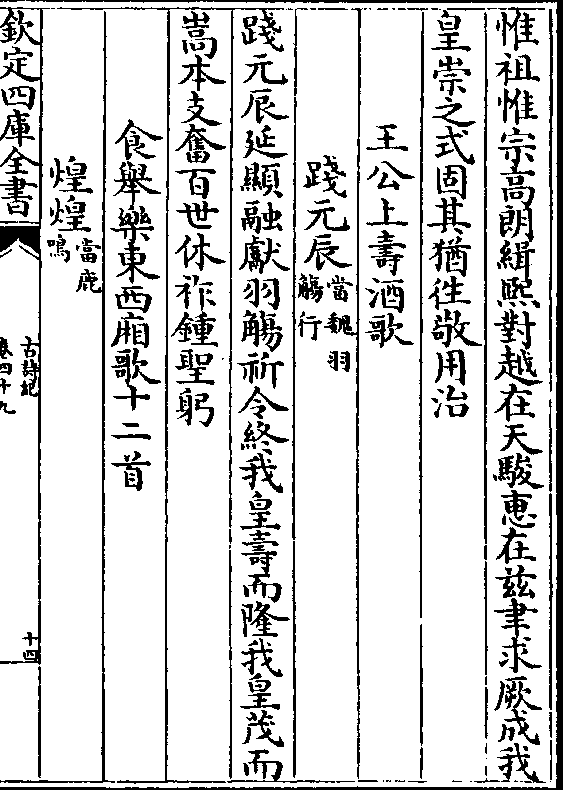 惟祖惟宗髙朗緝熈對越在天駿恵在兹聿求厥成我
皇崇之式固其猶徃敬用治
王公上壽酒歌
踐元辰當魏羽觴行
踐元辰延顯融獻羽觴祈令終我皇壽而隆我皇茂而
嵩本支奮百世休祚鍾聖躬
食舉樂東西廂歌十二首
煌煌當鹿鳴
欽定四庫全書
古詩紀
卷四十九
十四